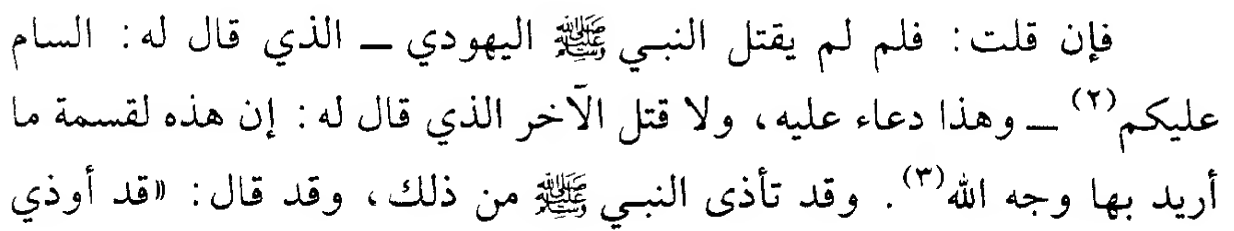 فإن قلت: فلم لم يقتل النبي ﷺ اليهودي ــ الذي قال له: السام
عليكم(٢) ــ وهذا دعاء عليه، ولا قتل الآخر الذي قال له: إن هذه لقسمة ما
أريد بها وجه الله(٣). وقد تأذى النبي ﷺ من ذلك، وقد قال: «قد أوذي